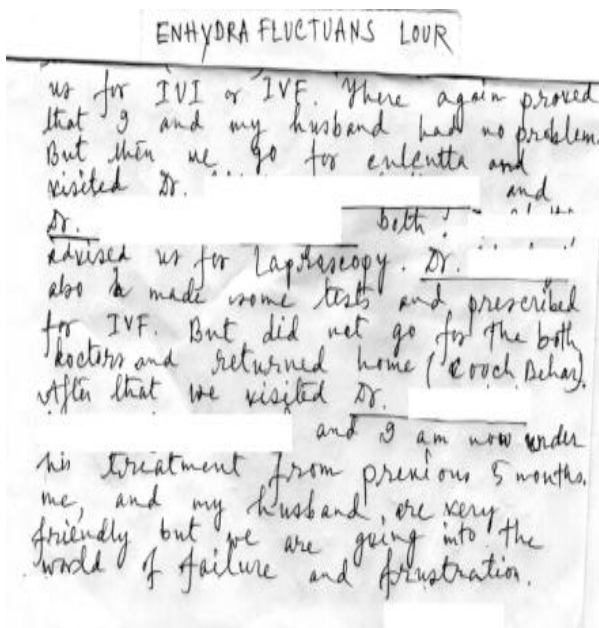 ENHYDRA FLUCTUANS LOUR
us for IVI or IVF. There again proved
that I and my husband had no problem.
But then we go for culcutta and
visited Dr.
and
Dr. both
advised us for Laprascopy. Dr.
also made some tests and prescribed
for IVF. But did not go for the both
doctors and returned home (Cooch Behar).
After that we visited Dr.
and I am now under
his treatment from previous 5 months.
me, and my husband are very
friendly but we are going into the
world of failure and frustration.